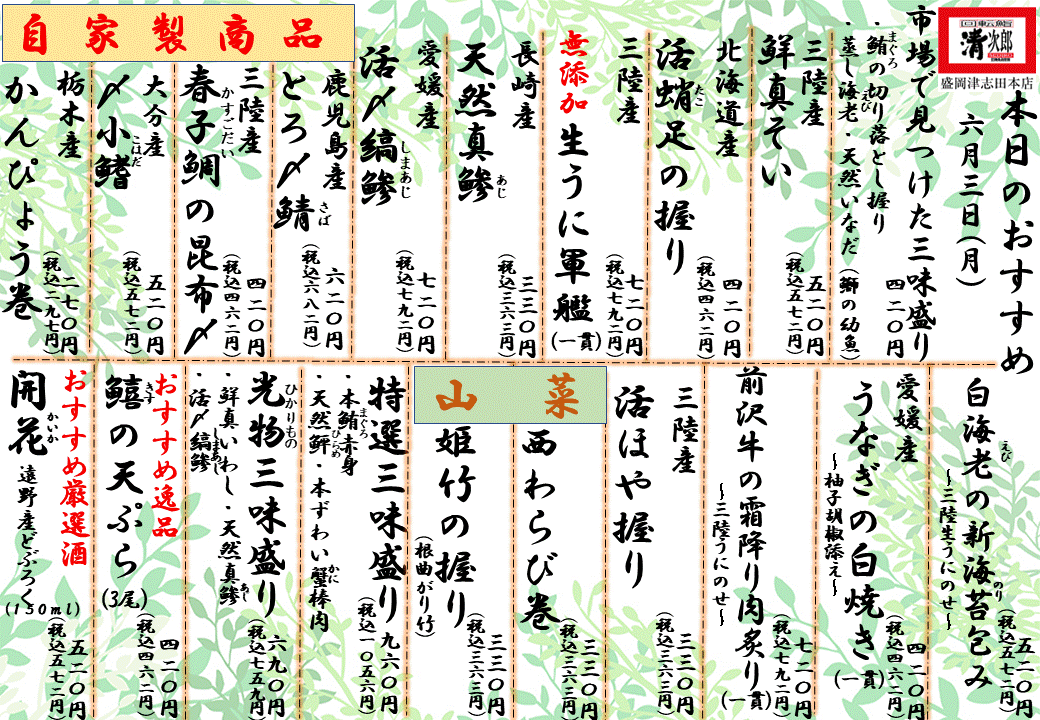 回転鮨
清次郎
盛岡津志田本店
本日のおすすめ
六月三日(月)
市場で見つけた三味盛り
・鮪の切り落とし握り
まぐろ
・蒸し海老・天然いなだ(鰤の幼魚)
えび
四二〇円
三陸産
鮮真そい
五二〇円
(税込五七二円)
北海道産
活蛸足の握り
たこ
四二〇円
(税込四六二円)
三陸産
無添加
生うに軍艦
(一貫)
七二〇円
(税込七九二円)
長崎産
天然真鯵
あじ
三三〇円
(税込三六三円)
愛媛産
活〆縞鯵
しまあじ
七二〇円
(税込七九二円)
自家製商品
鹿児島産
とろ〆鯖
さば
六二〇円
(税込六八二円)
三陸産
春子鯛の昆布〆
かすごだい
四二〇円
(税込四六二円)
大分産
〆小鰭
こはだ
五二〇円
(税込五七二円)
栃木産
かんぴょう巻
二七〇円
(税込二九七円)
白海老の新海苔包み
えび
のり
~三陸生うにのせ~
五二〇円
(税込五七二円)
愛媛産
うなぎの白焼き
(一貫)
~柚子胡椒添え~
四二〇円
(税込四六二円)
前沢牛の霜降り肉炙り
(一貫)
~三陸うにのせ~
七二〇円
(税込七九二円)
三陸産
活ほや握り
三三〇円
(税込三六三円)
山菜
西わらび巻
三三〇円
(税込三六三円)
姫竹の握り
(根曲がり竹)
三三〇円
(税込三六三円)
特選三味盛り
・本鮪赤身
まぐろ
・天然鮃・本ずわい蟹棒肉
ひらめ
かに
九六〇円
(税込一〇五六円)
光物三味盛り
ひかりもの
・鮮真いわし・天然真鯵
あじ
・活〆縞鯵
しまあじ
六九〇円
(税込七五九円)
おすすめ逸品
鱚の天ぷら
きす
(3尾)
四二〇円
(税込四六二円)
おすすめ厳選酒
開花
かいか
遠野産どぶろく
(150ml)
五二〇円
(税込五七二円)